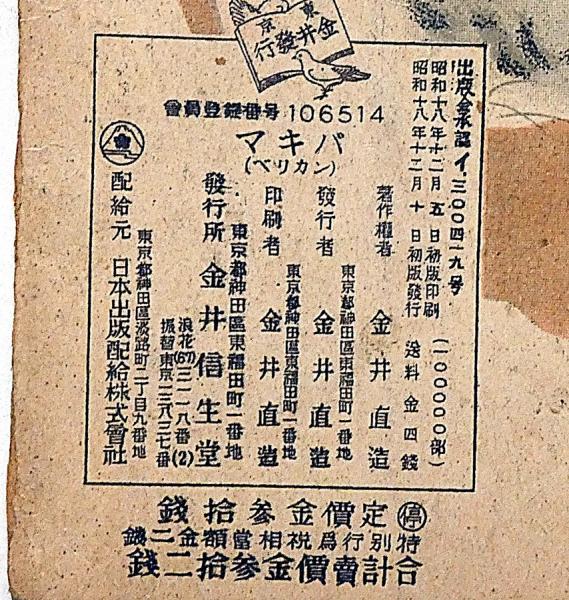 東京
金井發行
會員登録番号 106514
マキパ
(ベリカン)
出版會承認イ.三〇〇四一九号
昭和十八年十二月五日初版印刷 (一〇〇〇〇部)
昭和十八年十二月十日初版發行 送料金四錢
著作權者 金井直造
東京都神田區東福田町一番地
發行者 金井直造
東京都神田區東福田町一番地
印刷者 金井直造
東京都神田區東福田町一番地
發行所 金井信生堂
浪花(67)三一一八(2)
振替東京一三八三七番
東京都神田區淡路町二丁目九番地
配給元 日本出版配給株式會社
停 定價金参拾錢
特別行爲税相當額金二錢
合計賣價金参拾二錢